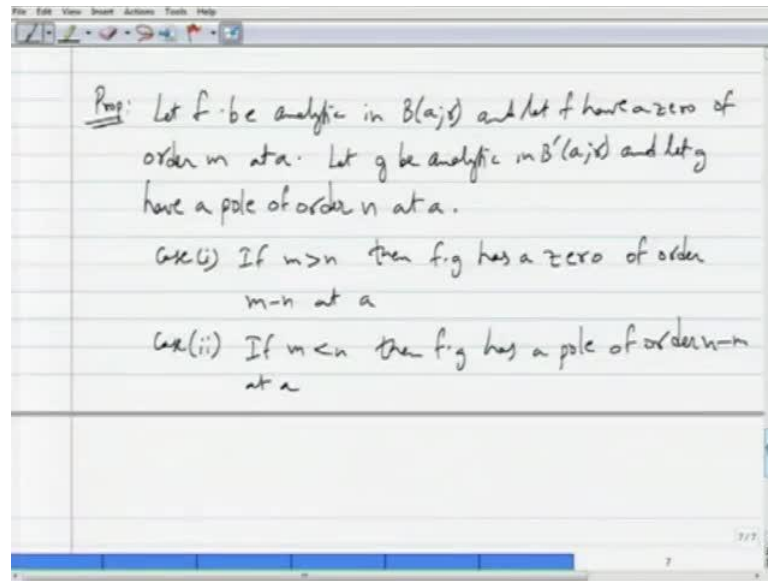 File Edit View Insert Actions Tools Help
Prop: Let f be analytic in B(a;r) and let f have a zero of
order m at a. Let g be analytic in B'(a;r) and let g
have a pole of order n at a.
Case(i) If m>n then f.g has a zero of order
m-n at a
Case(ii) If m<n then f.g has a pole of order n-m
at a
7/7
7